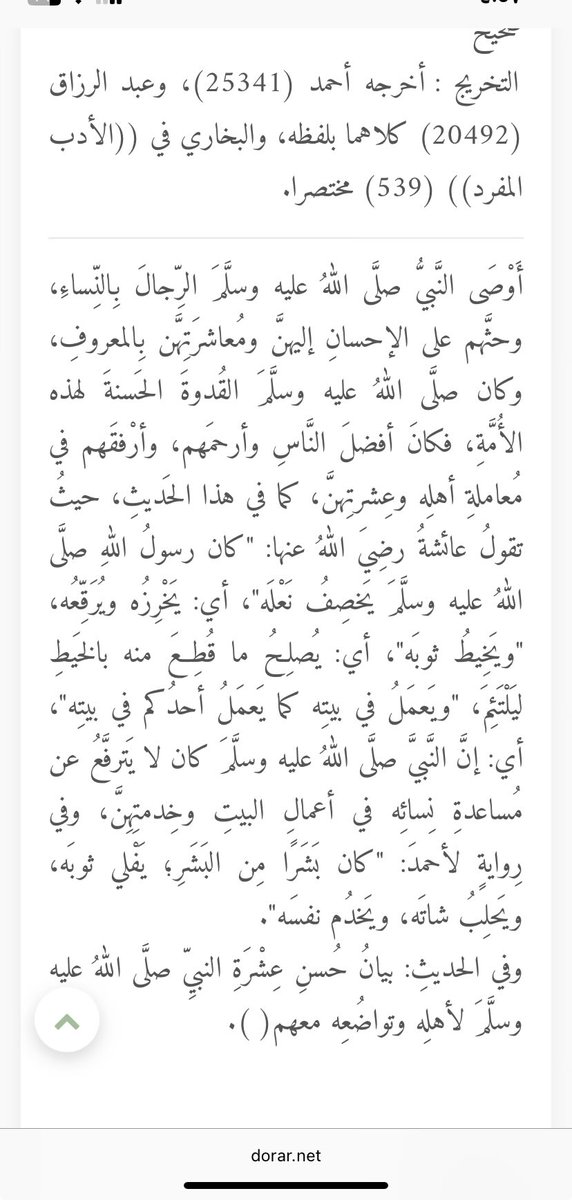 صحيح
التخريج : أخرجه أحمد (25341)، وعبد الرزاق
(20492) كلاهما بلفظه، والبخاري في ((الأدب
المفرد)) (539) مختصرا.
أَوْصَى النَّبيُّ صلَّى اللهُ عليه وسلَّمَ الرِّجالَ بِالنِّساءِ،
وحثَّهم على الإحسانِ إليهنَّ ومُعاشرَتِهَّن بِالمعروفِ،
وكان صلَّى اللهُ عليه وسلَّمَ القُدوةَ الحَسنةَ لهذه
الأُمَّةِ، فكانَ أفضلَ النَّاسِ وأرحمَهم، وأرْفقَهم في
مُعاملةِ أهلِه وعِشرتِهنَّ، كما في هذا الحَديثِ، حيثُ
تقولُ عائشةُ رضِيَ اللهُ عنها: "كان رسولُ اللهِ صلَّى
اللهُ عليه وسلَّمَ يَخصِفُ نَعْلَه"، أي: يَخْرِزُه ويُرَقِّعُه،
"ويَخِيطُ ثوبَه"، أي: يُصلِحُ ما قُطِعَ منه بالخَيطِ
ليَلْتَئِمَ، "ويَعمَلُ في بيتِه كما يَعمَلُ أحدُكم في بيتِه"،
أي: إنَّ النَّبيَّ صلَّى اللهُ عليه وسلَّمَ كان لا يَترفَّعُ عن
مُساعدةِ نِسائِه في أعمالِ البيتِ وخِدمتِهِنَّ، وفي
رِوايةٍ لأحمدَ: "كان بَشَرًا مِن البَشَرِ؛ يَفْلي ثوبَه،
ويَحلِبُ شاتَه، ويَخدُم نفسَه".
وفي الحديثِ: بيانُ حُسنِ عِشْرَةِ النبيِّ صلَّى اللهُ عليه
وسلَّمَ لأهلِه وتواضُعِه معهم( ).
dorar.net